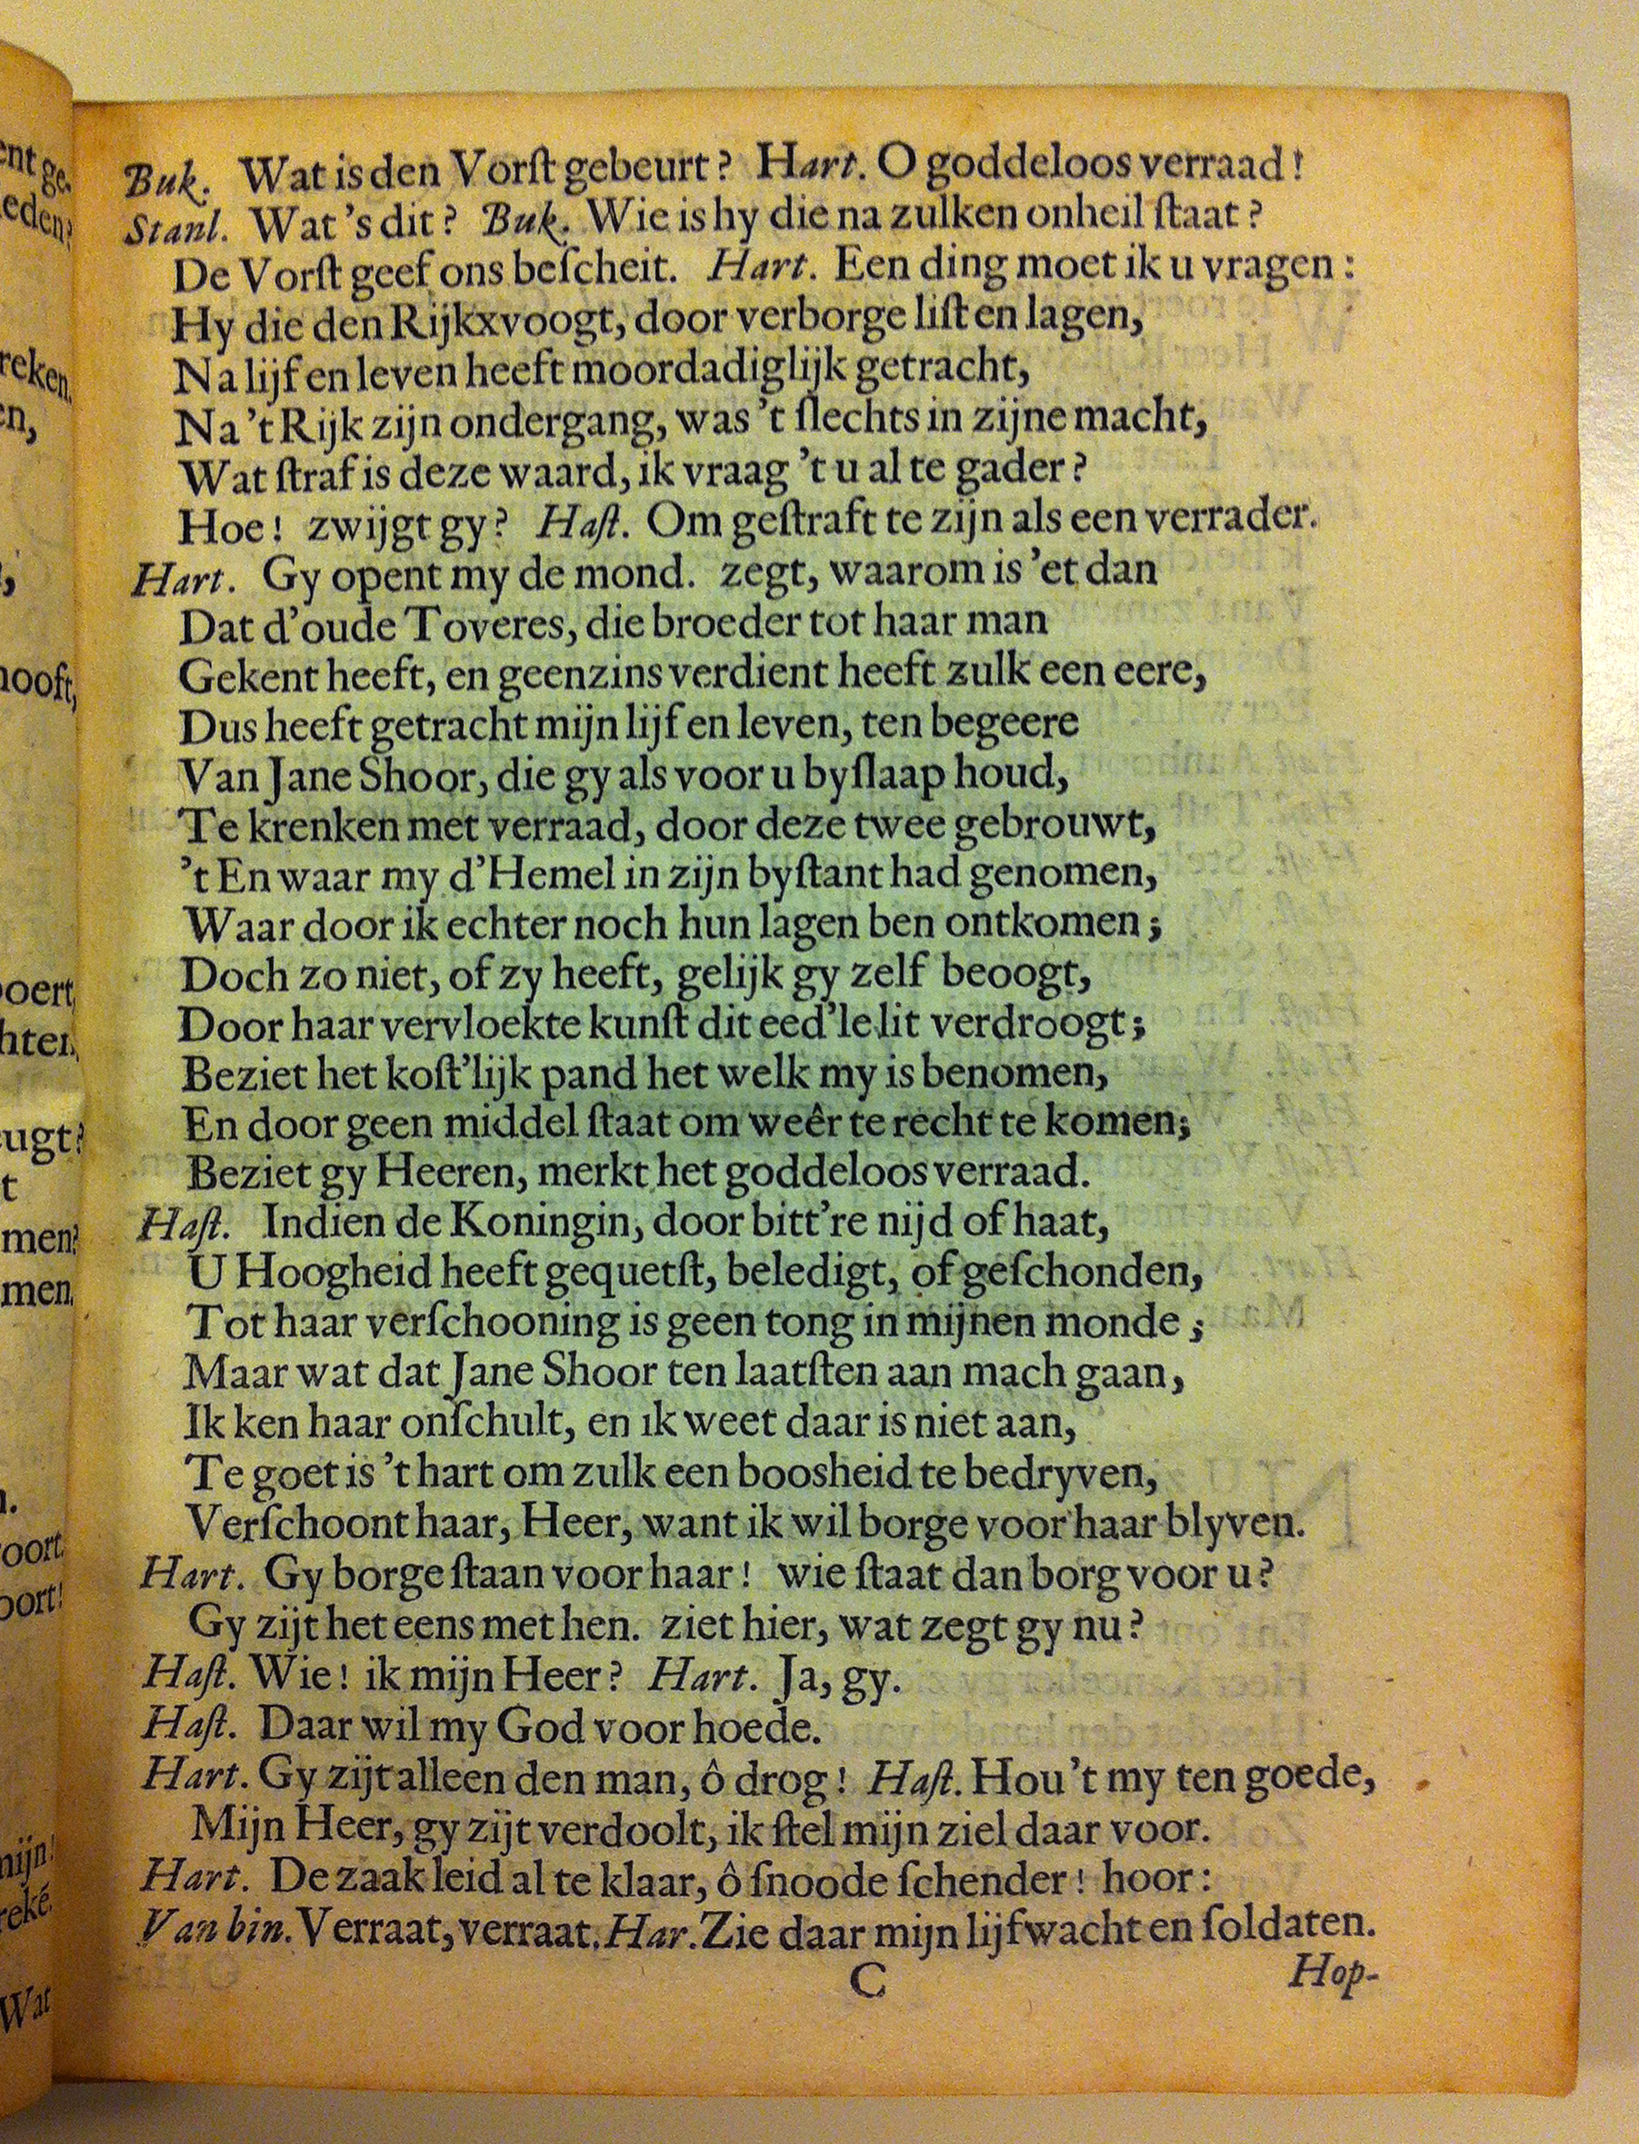 Buk. Wat is den Vorſt gebeurt? Hart. O goddeloos verraad!
Stanl. Wat 's dit? Buk. Wie is hy die na zulken onheil ſtaat?
De Vorſt geef ons beſcheit. Hart. Een ding moet ik u vragen:
Hy die den Rijkxvoogt, door verborge liſt en lagen,
Na lijf en leven heeft moordadiglijk getracht,
Na 't Rijk zijn ondergang, was 't ſlechts in zijne macht,
Wat ſtraf is deze waard, ik vraag 't u al te gader?
Hoe! zwijgt gy? Haſt. Om geſtraft te zijn als een verrader.
Hart. Gy opent my de mond. zegt, waarom is 'et dan
Dat d'oude Toveres, die broeder tot haar man
Gekent heeft, en geenzins verdient heeft zulk een eere,
Dus heeft getracht mijn lijf en leven, ten begeere
Van Jane Shoor, die gy als voor u byſlaap houd,
Te krenken met verraad, door deze twee gebrouwt,
't En waar my d'Hemel in zijn byſtant had genomen,
Waar door ik echter noch hun lagen ben ontkomen;
Doch zo niet, of zy heeft, gelijk gy zelf beoogt,
Door haar vervloekte kunſt dit eed'le lit verdroogt;
Beziet het koſt'lijk pand het welk my is benomen,
En door geen middel ſtaat om weêr te recht te komen;
Beziet gy Heeren, merkt het goddeloos verraad.
Haſt. Indien de Koningin, door bitt're nijd of haat,
U Hoogheid heeft gequetſt, beledigt, of geſchonden,
Tot haar verſchooning is geen tong in mijnen monde;
Maar wat dat Jane Shoor ten laatſten aan mach gaan,
Ik ken haar onſchult, en ik weet daar is niet aan,
Te goet is 't hart om zulk een boosheid te bedryven,
Verſchoont haar, Heer, want ik wil borge voor haar blyven.
Hart. Gy borge ſtaan voor haar! wie ſtaat dan borg voor u?
Gy zijt het eens met hen. ziet hier, wat zegt gy nu?
Haſt. Wie! ik mijn Heer? Hart. Ja, gy.
Haſt. Daar wil my God voor hoede.
Hart. Gy zijt alleen den man, ô drog! Haſt. Hou 't my ten goede,
Mijn Heer, gy zijt verdoolt, ik ſtel mijn ziel daar voor.
Hart. De zaak leid al te klaar, ô ſnoode ſchender! hoor:
Van bin. Verraat, verraat. Har. Zie daar mijn lijfwacht en ſoldaten.
C
Hop-